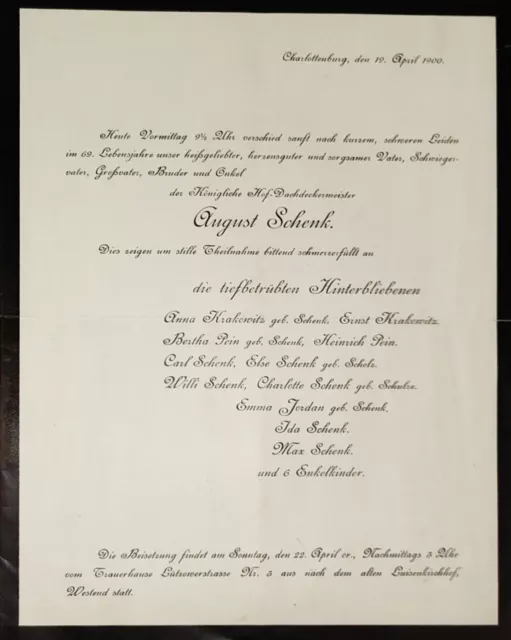 Charlottenburg, den 19. April 1900.
Heute Vormittag 9½ Uhr verschied sanft nach kurzem, schweren Leiden
im 69. Lebensjahre unser heißgeliebter, herzensguter und sorgsamer Vater, Schwieger-
vater, Großvater, Bruder und Onkel
der Königliche Hof-Dachdeckermeister
August Schenk.
Dies zeigen um stille Theilnahme bittend schmerzerfüllt an
die tiefbetrübten Hinterbliebenen
Anna Krakowitz geb. Schenk, Ernst Krakowitz.
Bertha Pein geb. Schenk, Heinrich Pein.
Carl Schenk, Else Schenk geb. Scholz.
Willi Schenk, Charlotte Schenk geb. Schulze.
Emma Jordan geb. Schenk.
Ida Schenk.
Max Schenk.
und 6 Enkelkinder.
Die Beisetzung findet am Sonntag, den 22. April cr., Nachmittags 3 Uhr
vom Trauerhause Lützowerstrasse Nr. 3 aus nach dem alten Luisenkirchhof,
Westend statt.